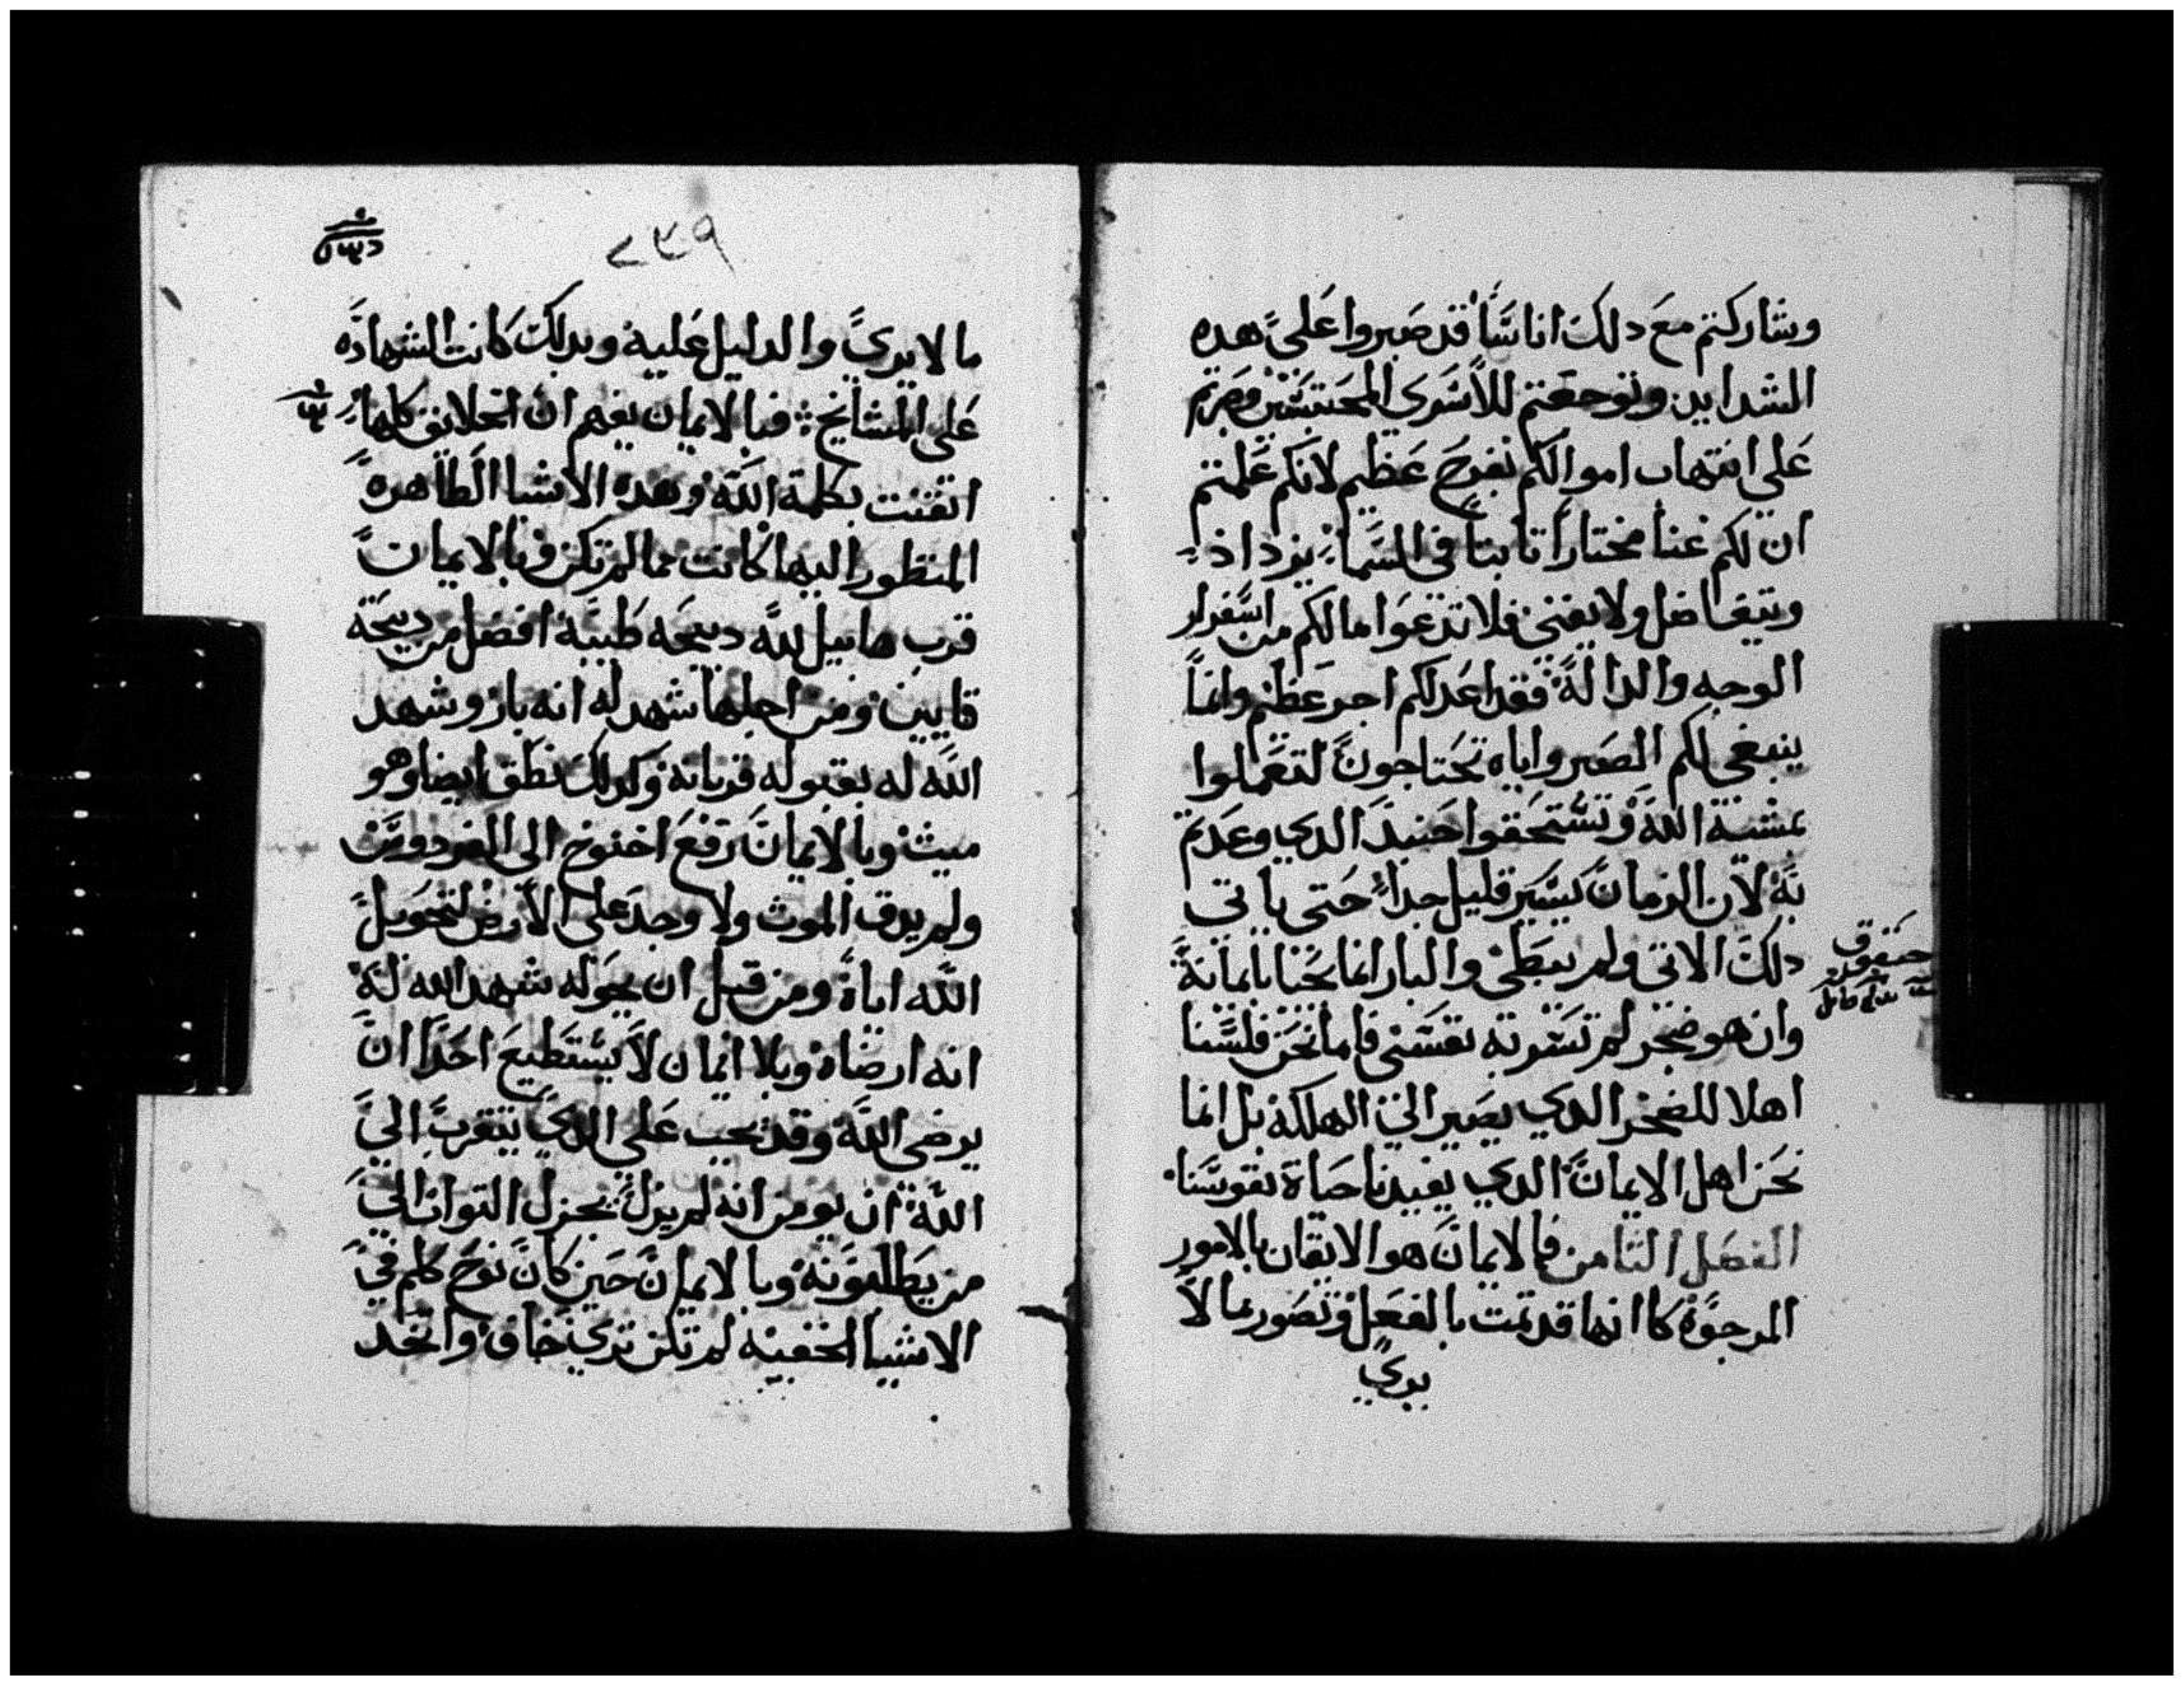 وشاركتم مع دلك اناسًا قد صبروا على هده
الشدايد وتوجعتم للأسرى المحتبسين وصرتم
على انتهاب اموالكم بفرح عظيم لانكم علمتم
ان لكم غنا مختارا تابتا في السما يزداد
ويتفاضل ولا يفنى فلا تدعوا مالكم من اسفرار
الوجه والدالة فقد اعد لكم اجر عظيم وانما
ينبغي لكم الصبر واياه تحتاجون لتعملوا
بمشية الله وتستحقوا حينيد الدي وعدتم
به لان الزمان يسير قليل جدا حتى ياتي
دلك الاتي ولم يبطي والبار انما يحيا بايمانه
وان هو ضجر لم تسر به نفسي فاما نحن فلسنا
اهلا للضجر الدي يصير الى الهلكة بل انما
نحن اهل الايمان الدي يفيدنا حياة نفوسنا
الفصل الثامن فالايمان هو الايقان بالامور
المرجوة كانها قد تمت بالفعل وتصور ما لا
يري
حبقوق
٢٣٩
ما لا يرى والدليل عليه وبدلك كانت الشهاده
على المشايخ فبالايمان يفهم ان الخلايق كلها
اتقنت بكلمة الله وهده الاشيا الظاهره
المنظور اليها كانت مما لم تكن فبالايمان
قرب هابيل لله دبيحه طيبه افضل من دبيحة
قايين ومن اجلها شهد له انه بار وشهد
الله له بقبوله قربانه وكدلك نطق ايضا وهو
ميت وبالايمان رفع اخنوخ الى الفردوس
ولم يدق الموت ولا وجد على الارض لتحويل
الله اياه ومن قبل ان يحوله شهد الله له
انه ارضاه وبلا ايمان لا يستطيع احدا ان
يرضي الله وقد يجب على الدي يتقرب الى
الله ان يومن انه لم يزل يجزل التواب الى
من يطلبونه وبالايمان حين كان نوح كلم في
الاشيا الخفيه لم تكن ترى خاف واتخد